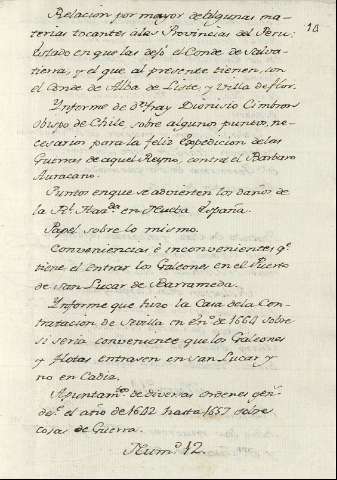 Relacion por mayor de algunas ma-
terias tocantes a las Provincias del Peru:
Estado en que las dejó el Conde de Salva-
tierra, y el que al presente tienen, con
el Conde de Alba de Liste, y Villa de flor.
Ynforme de Dn. fray Dionisio Cimbron
obispo de Chile sobre algunos puntos, ne-
cesarios para la feliz Expedicion de las
Guerras de aquel Reyno, contra el Barbaro
Auracano.
Puntos en que se advierten los daños de
la Rl. Hazda. en Nueba España.
Papel sobre lo mismo.
Conveniencias è inconvenientes qe.
tiene el entrar los Galeones en el Puerto
de San Lucar de Barrameda.
Ynforme que hizo la Casa de la Con-
tratacion de Sevilla en Eno. de 1664 sobre
si seria conveniente que los Galeones
y flotas entrasen en San Lucar y
no en Cadiz.
Apuntamtos. de diversas ordenes
desde. el año de 1642 hasta 1657 sobre
cosas de Guerra.
Numo. 12.